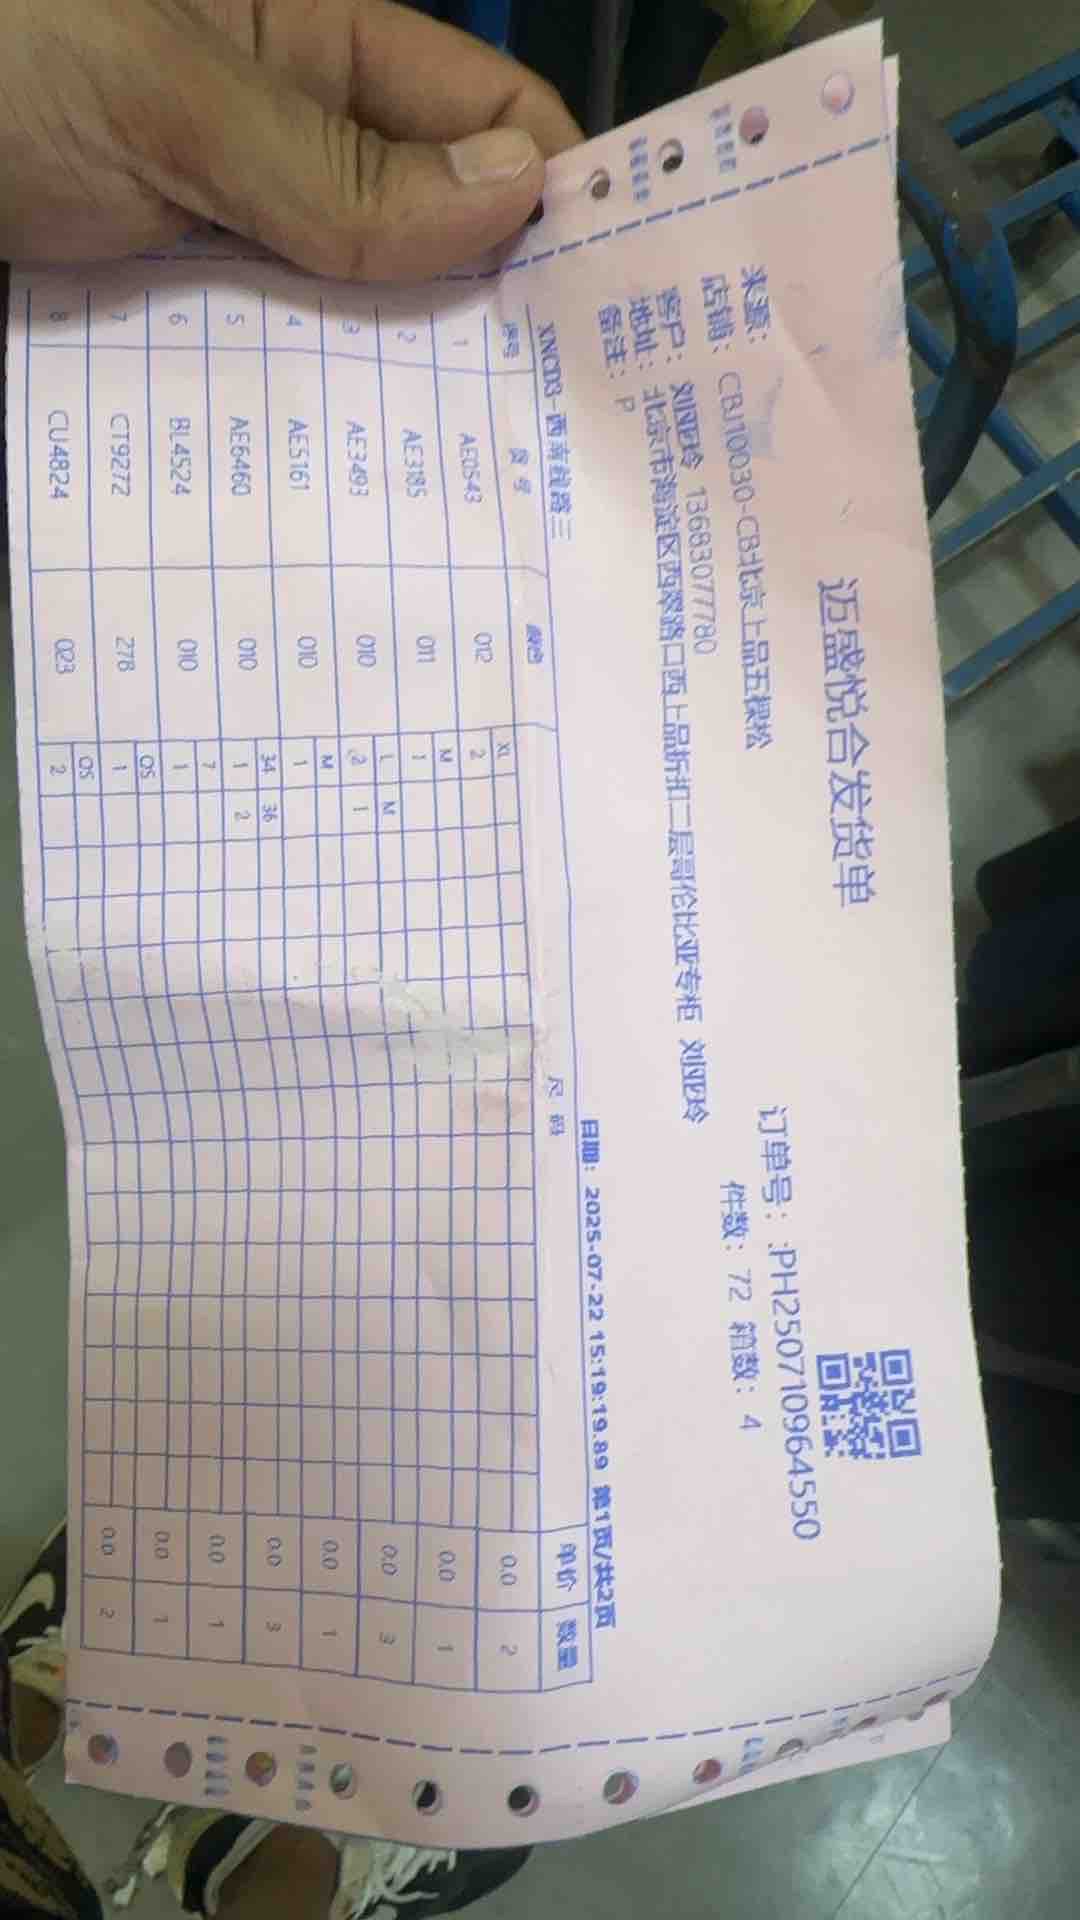 迈盛悦合发货单
来源：
订单号：:PH250710964550
店铺：CBJ10030-CB北京上品五棵松
件数：72 箱数：4
客户：刘亚玲 13683077780
地址：北京市海淀区西翠路口西上品折扣二层哥伦比亚专柜 刘亚玲
备注：P
日期：2025-07-22 15:19:19.89 第1页/共2页
XNCD3-西南线路三
序号 货号 颜色 尺码 单价 数量
XL
1 AE0543 012 2 0.0 2
M
2 AE3185 011 1 0.0 1
L M
3 AE3493 010 2 1 0.0 3
M
4 AE5161 010 1 0.0 1
34 36
5 AE6460 010 1 2 0.0 3
7
6 BL4524 010 1 0.0 1
OS
7 CT9272 278 1 0.0 1
OS
8 CU4824 023 2 0.0 2